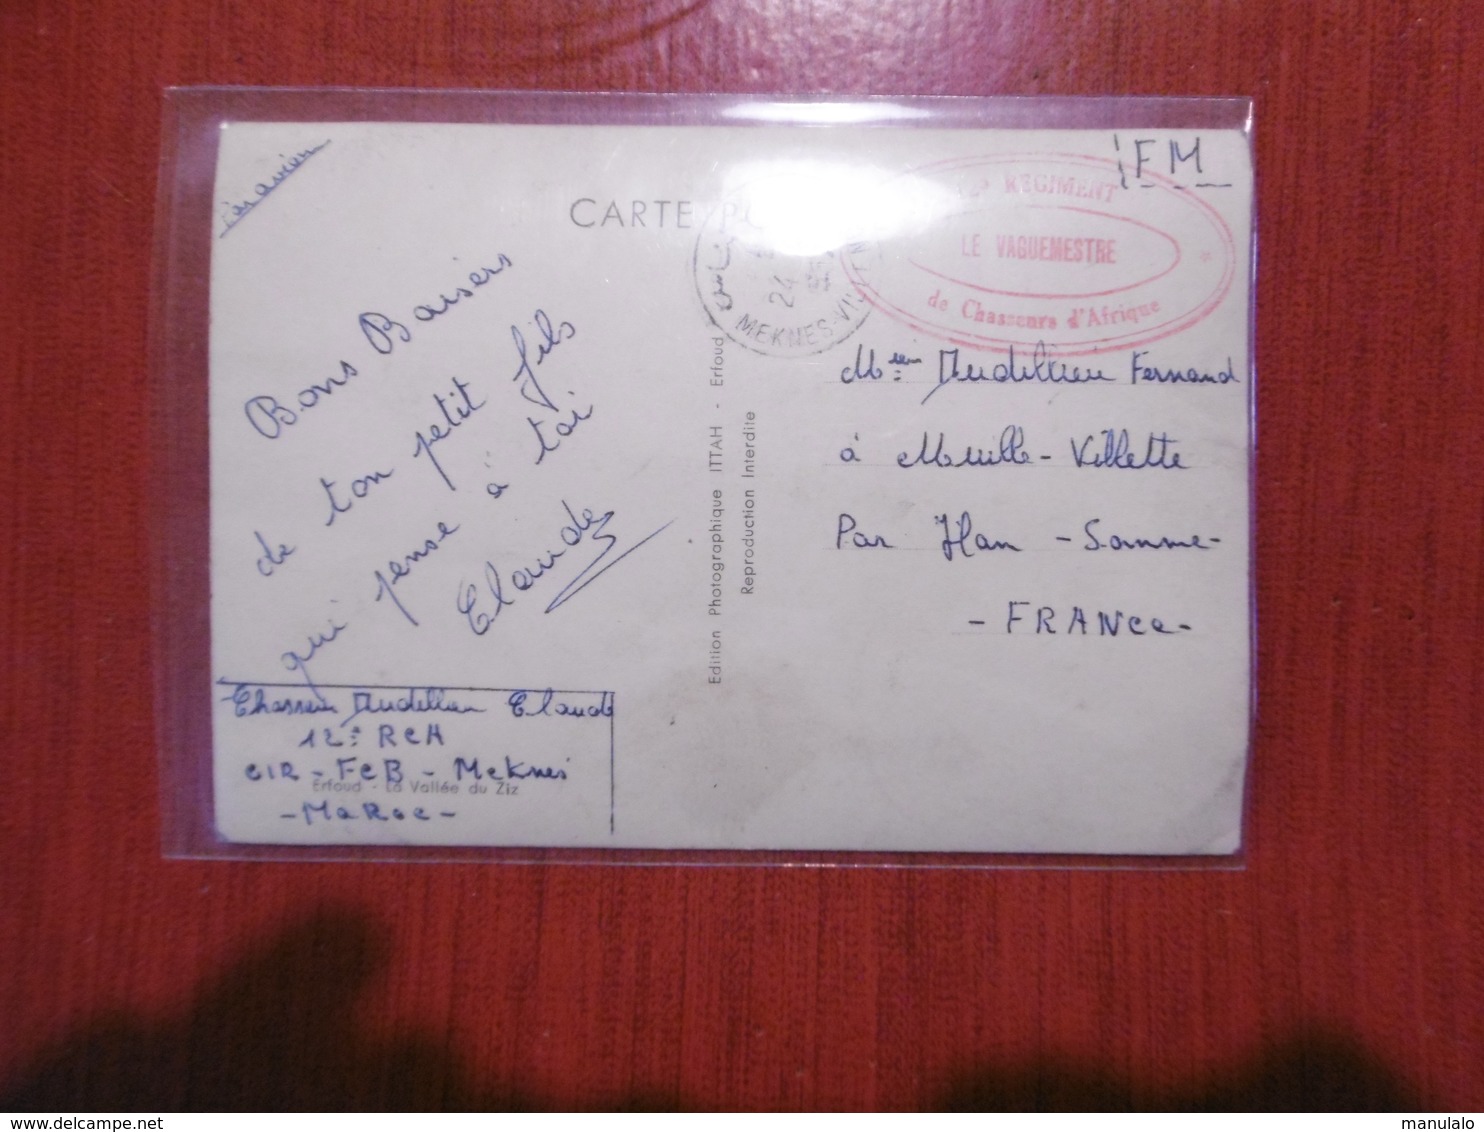 Par avion
F M
CARTE
RÉGIMENT
LE VAGUEMESTRE
de Chasseurs d'Afrique
24
MEKNES-VI
Bons Baisers
de ton petit fils
qui pense à toi
Claude
Edition Photographique ITTAH - Erfoud
Reproduction Interdite
Fernand
à Muille-Villette
Par Ham - Somme -
- FRANCe -
Chasseur Claude
12e RCH
CIR - FCB - Meknes
Erfoud - La Vallée du Ziz
- MaRoc -
manulalo